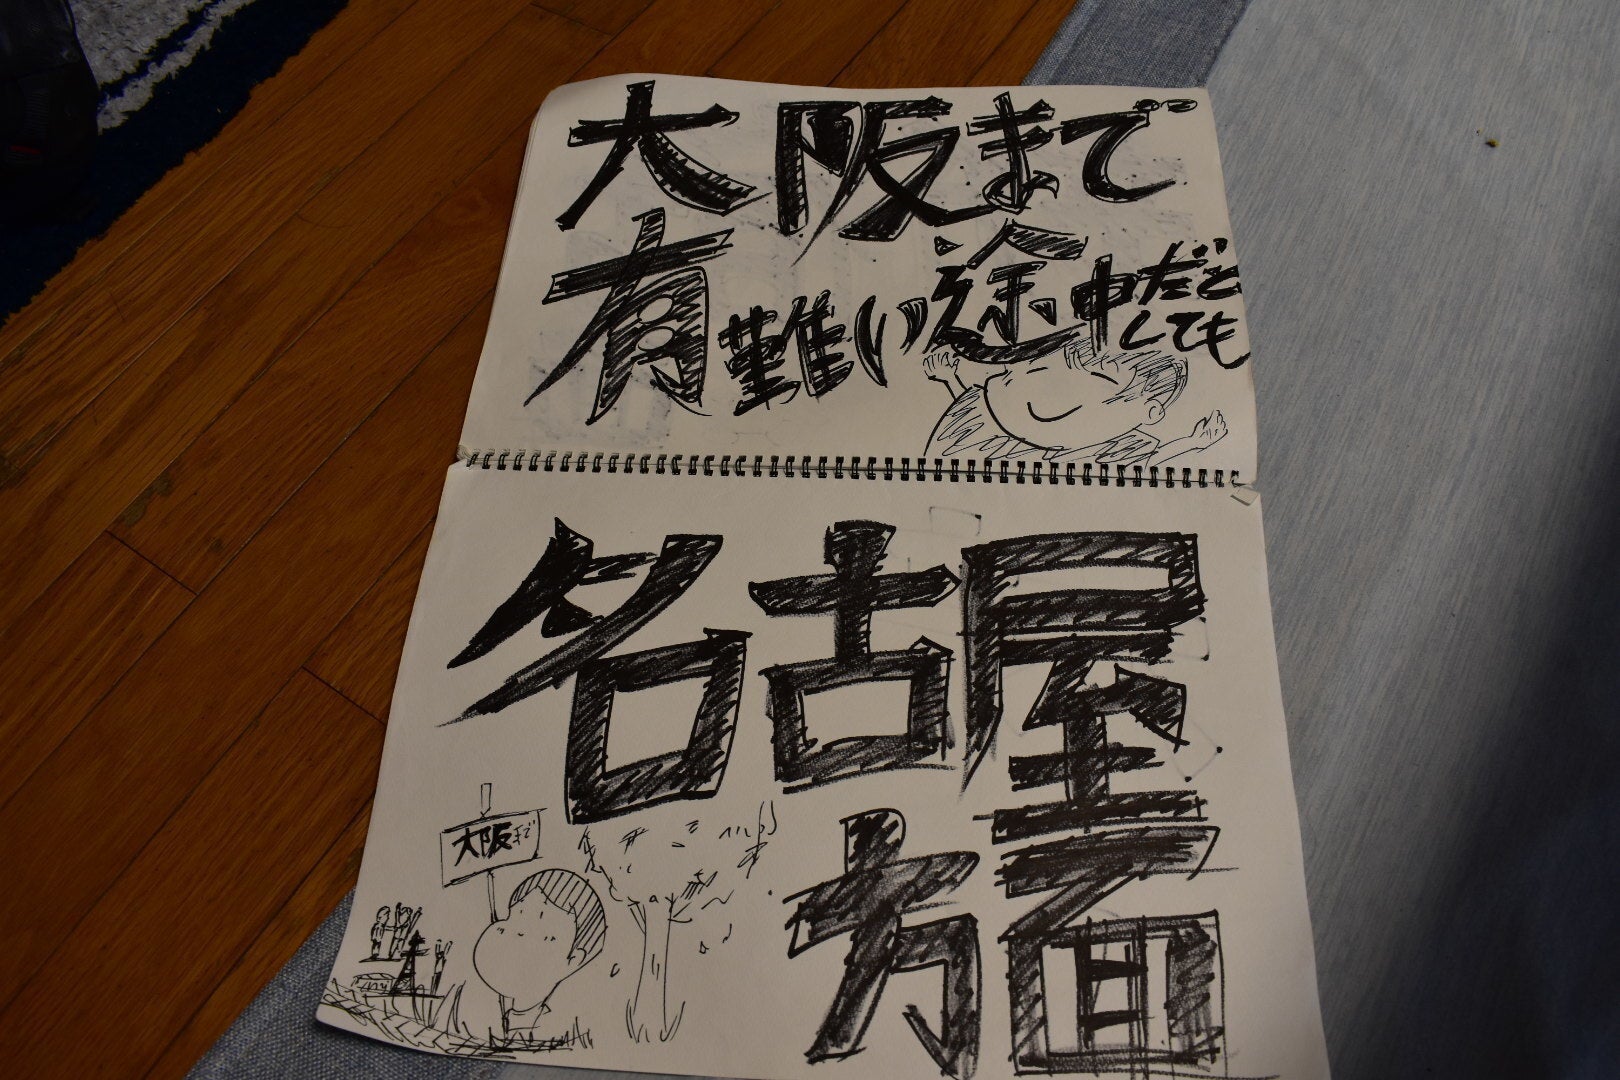 大阪まで
有難い途中だと
しても
名古屋
方面
大阪まで